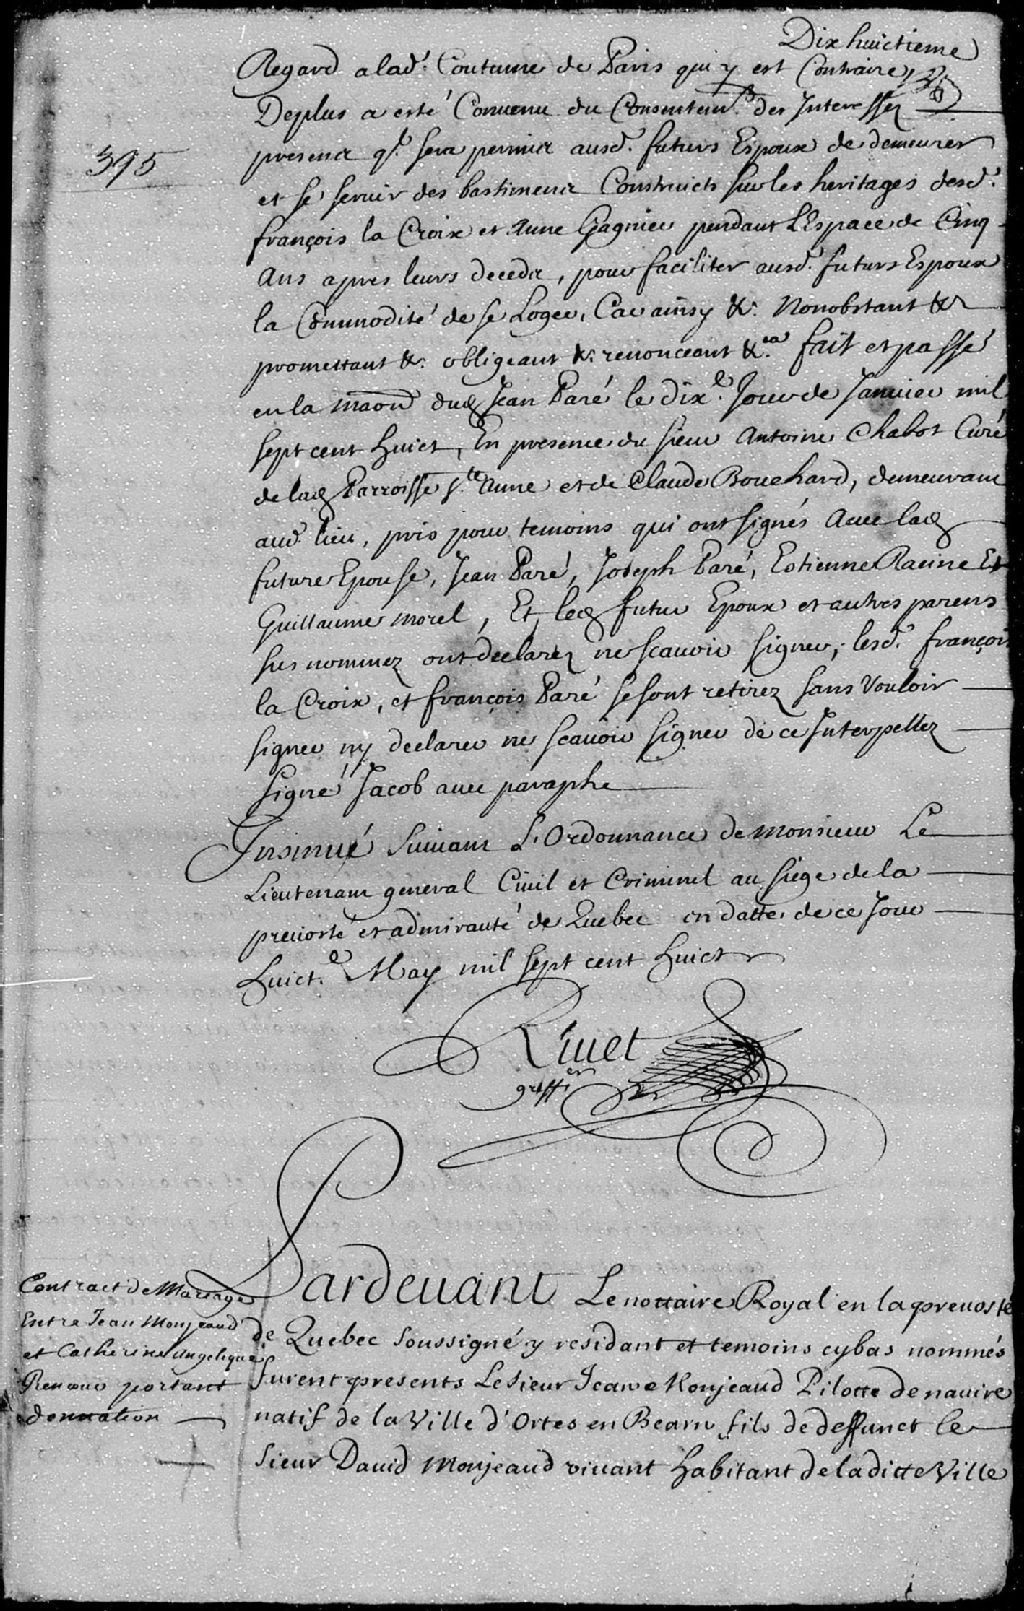 Dix huictieme
Regard a lad. Coutume de Paris qui y est Contraire,
Deplus a esté Convenu du Consentemt. des Interessez
395
presens q. sera permis ausd. futurs Espoux de demeurer
et se servir des bastimens Construicts sur les heritages desd.
françois la Croix et Anne Gagnier pendant L'Espace de Cinq
Ans apres leurs deceds, pour faciliter ausd. futurs Espoux
la Commodité de se Loger, Car ainsy &c. Nonobstant &c
promettant &c. obligeant &c. renonceant &ca. fait et passé
en la maon dud Jean Paré le dixe. Jour de Janvier mil
sept cent huict, En presence du sieur Antoine Chabot Curé
de lad Parroisse ste. Anne et de Claude Bouchard, demeurant
aud. lieu, pris pour temoins qui ont signés avec lad
future Epouse, Jean Paré, Joseph Paré, Estienne Racine Et
Guillaume Morel, Et led futur Epoux et autres parens
sus nommez ont declarez ne scavoir signer, lesd. françois
la Croix, et françois Paré se sont retirez sans Vouloir
signer ny declarer ne scavoir signer de ce Interpellez
signé Jacob avec paraphe
Insinué Suivant L'Ordonnance de Monsieur Le
Lieutenant general Civil et Criminel au siege de la
prevosté et admirauté de Quebec en datte de ce Jour
huicte. May mil sept cent huict
Rivet
greffier
Contract de Mariage
Entre Jean Monjeaud
et Catherine Angelique
Renaud portant
donnation
Pardevant Le nottaire Royal en la prevosté
de Quebec soussigné y residant et temoins cybas nommés
furent presents Le Sieur Jean Monjeaud Pilotte de navire
natif de la Ville d'Ortes en Bearn fils de deffunct le
Sieur David Monjeaud vivant habitant de laditte Ville